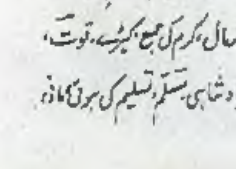 سال، کرم کی جمع کیڑے، قوت،
و شاہی مسلّم، تسلیم کی ہوئی